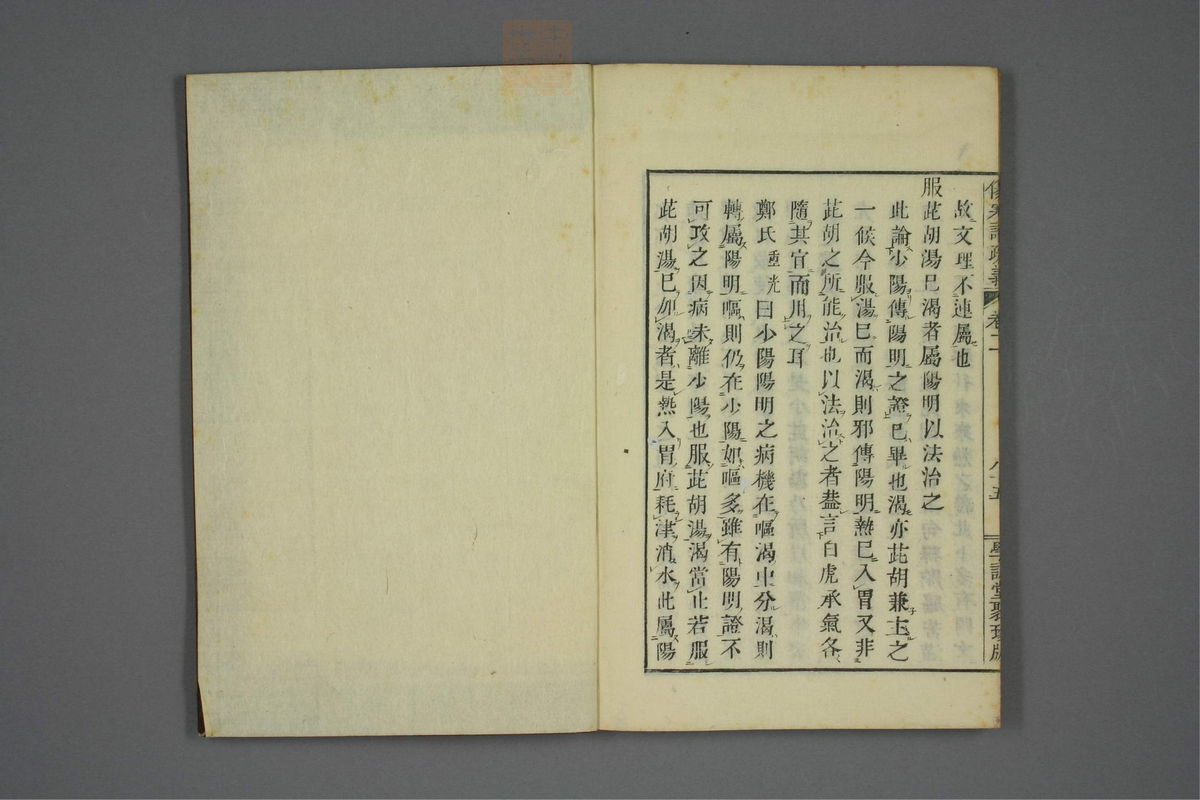 故文理不連屬也
服茈胡湯巳渴者屬陽明以法治之
此論少陽傳陽明之證巳畢也渴亦茈胡兼主之
一候今服湯巳而渴則邪傳陽明熱巳入胃又非
茈胡之所能治也以法治之者葢言白虎承氣各
隨其宜而用之耳
鄭氏重光曰少陽陽明之病機在嘔渴中分渴則
轉屬陽明嘔則仍在少陽如嘔多雖有陽明證不
可攻之因病未離少陽也服茈胡湯渴當止若服
茈胡湯巳加渴者是熱入胃府耗津消水此屬陽
傷寒論疏義 卷二 八十五 學訓堂聚珍版